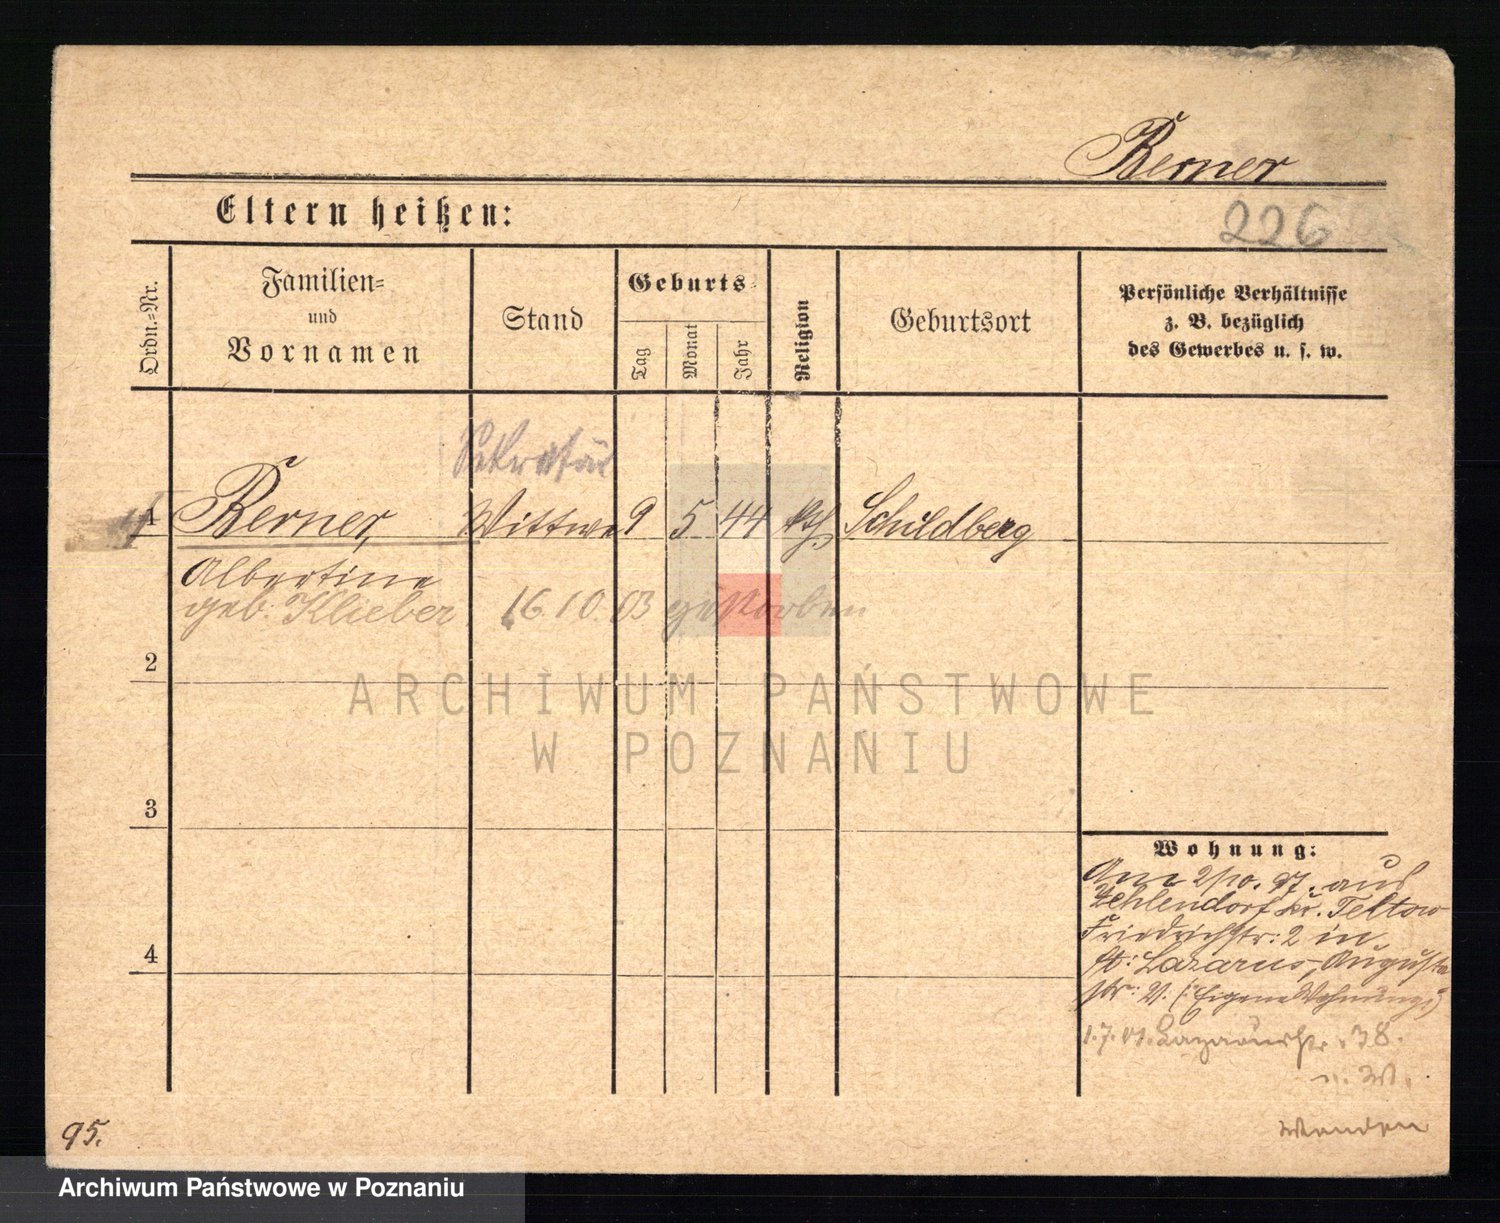 Berner
Eltern heißen:
226
Ordn.-Nr.
Familien-
und
Vornamen
Stand
Geburts-
Tag
Monat
Jahr
Religion
Geburtsort
Persönliche Verhältnisse
z. B. bezüglich
des Gewerbes u. s. w.
Sekretär
1 Berner, Wittwe 9 5 44 kth. Schildberg
Albertine
geb. Klieber 16.10.03 gestorben
2
ARCHIWUM PAŃSTWOWE
W POZNANIU
3
4
Wohnung:
Am 2/10. 97. aus
Zehlendorf Kr. Teltow
Friedrichstr: 2 in
St: Lazarus, Augusta
str: V. (: Eigene Wohnung :)
1.7.01. Lazarusstr. 38.
Wenden
95.
Archiwum Państwowe w Poznaniu